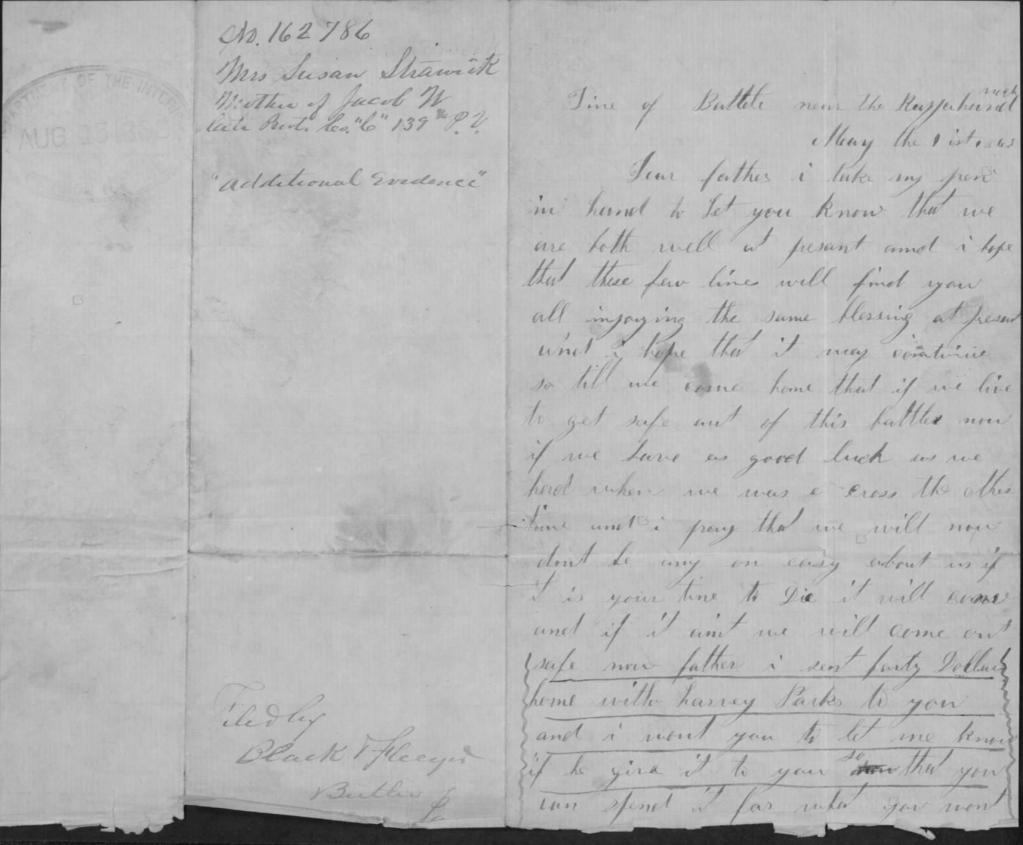 DEPARTMENT OF THE INTERIOR
AUG 23
No. 162786
Mrs Susan Strawick
Mother of Jacob W
late Privt. Co. "C" 139th P.V.
"Additional Evidence"
Filed by
Black & Fleeger
Butler
Line of Battle near the Rappehanock
May the 1 ist
Dear father i take my pen
in hand to Let you know that we
are both well at pesant and i hope
that these few lines will find you
all injoying the same blessing at presant
and i hope that it may continue
so till we come home that if we live
to get safe out of this battle now
if we have as good luck as we
had when we was a cross the other
time and i pray that we will now
dont be any on easy about us if
it is your time to Die it will come
and if it aint we will come out
safe now father i sent forty Dollars
home with harvey Parks to you
and i wont you to let me know
if he give it to you so that you
can spend it for what you wont